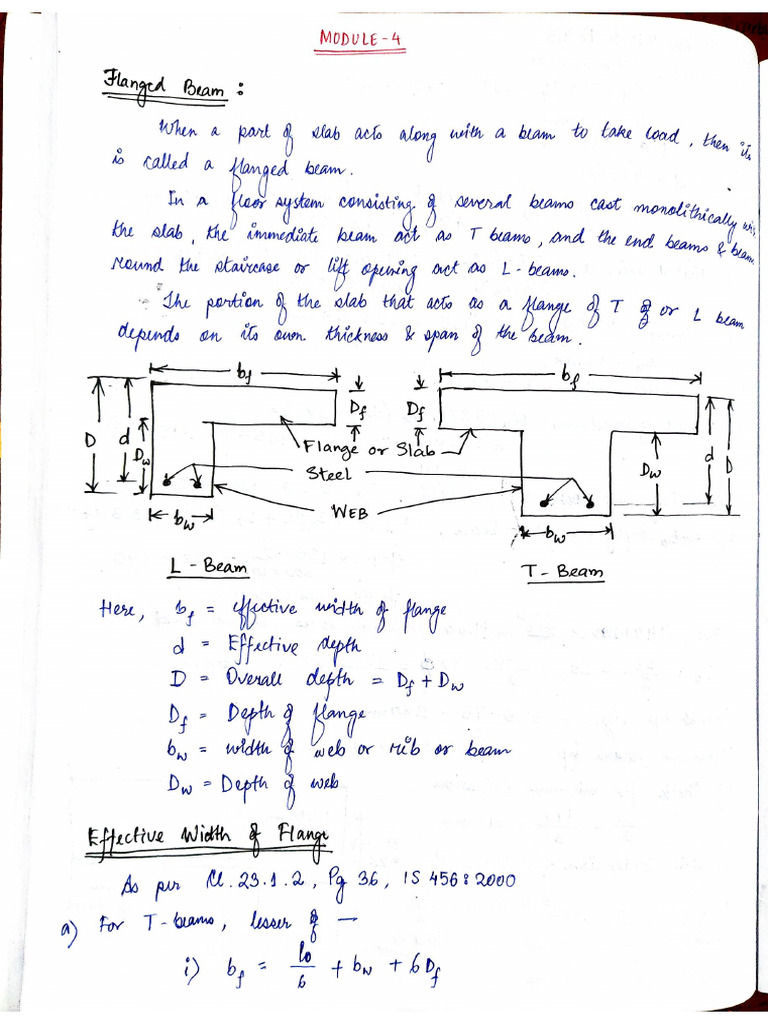 MODULE-4
Flanged Beam :
When a part of slab acts along with a beam to take load, then it
is called a flanged beam.
In a floor system consisting of several beams cast monolithically
the slab, the immediate beam act as T beams, and the end beams & beam
round the staircase or lift opening act as L-beams.
The portion of the slab that acts as a flange of T or L beam
depends on its own thickness & span of the beam.
bf
bf
D
d
Dw
Df
Df
Flange or Slab
Steel
WEB
Dw
d
D
bw
bw
L - Beam
T - Beam
Here, bf = effective width of flange
d = Effective depth
D = Overall depth = Df + Dw
Df = Depth of flange
bw = width of web or rib or beam
Dw = Depth of web
Effective Width of Flange
As per Cl. 23.1.2, Pg 36, IS 456:2000
a) For T-beams, lesser of —
i) bf = lo/6 + bw + 6Df